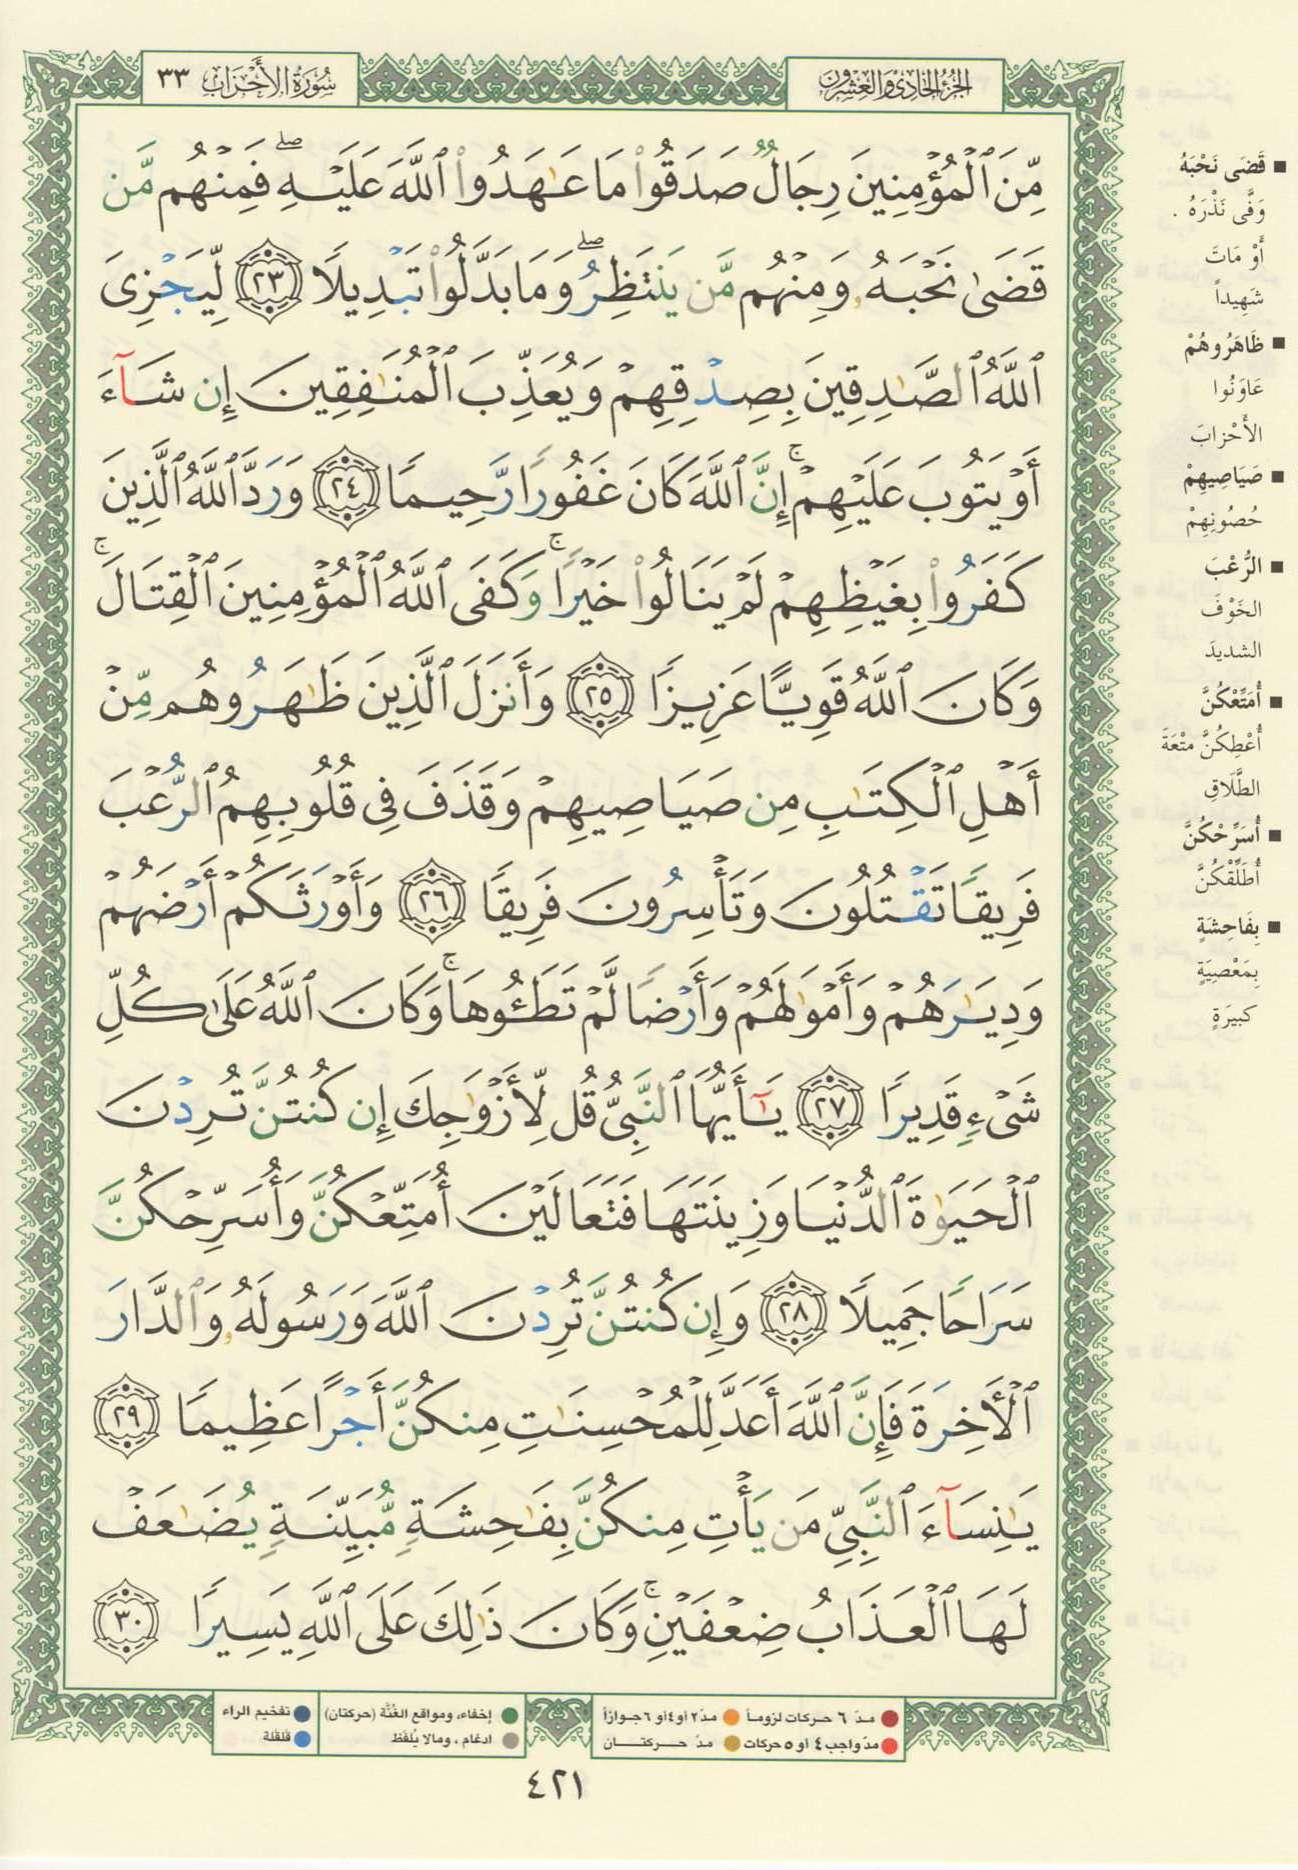 سُورَةُ الأَحْزَابِ ٣٣
الجُزْءُ الحَادِي وَالعِشْرُونَ
مِّنَ ٱلْمُؤْمِنِينَ رِجَالٌ صَدَقُوا۟ مَا عَـٰهَدُوا۟ ٱللَّهَ عَلَيْهِ ۖ فَمِنْهُم مَّن
قَضَىٰ نَحْبَهُۥ وَمِنْهُم مَّن يَنتَظِرُ ۖ وَمَا بَدَّلُوا۟ تَبْدِيلًا ﴿٢٣﴾ لِّيَجْزِىَ
ٱللَّهُ ٱلصَّـٰدِقِينَ بِصِدْقِهِمْ وَيُعَذِّبَ ٱلْمُنَـٰفِقِينَ إِن شَآءَ
أَوْ يَتُوبَ عَلَيْهِمْ ۚ إِنَّ ٱللَّهَ كَانَ غَفُورًا رَّحِيمًا ﴿٢٤﴾ وَرَدَّ ٱللَّهُ ٱلَّذِينَ
كَفَرُوا۟ بِغَيْظِهِمْ لَمْ يَنَالُوا۟ خَيْرًا ۚ وَكَفَى ٱللَّهُ ٱلْمُؤْمِنِينَ ٱلْقِتَالَ ۚ
وَكَانَ ٱللَّهُ قَوِيًّا عَزِيزًا ﴿٢٥﴾ وَأَنزَلَ ٱلَّذِينَ ظَـٰهَرُوهُم مِّنْ
أَهْلِ ٱلْكِتَـٰبِ مِن صَيَاصِيهِمْ وَقَذَفَ فِى قُلُوبِهِمُ ٱلرُّعْبَ
فَرِيقًا تَقْتُلُونَ وَتَأْسِرُونَ فَرِيقًا ﴿٢٦﴾ وَأَوْرَثَكُمْ أَرْضَهُمْ
وَدِيَـٰرَهُمْ وَأَمْوَٰلَهُمْ وَأَرْضًا لَّمْ تَطَـُٔوهَا ۚ وَكَانَ ٱللَّهُ عَلَىٰ كُلِّ
شَىْءٍ قَدِيرًا ﴿٢٧﴾ يَـٰٓأَيُّهَا ٱلنَّبِىُّ قُل لِّأَزْوَٰجِكَ إِن كُنتُنَّ تُرِدْنَ
ٱلْحَيَوٰةَ ٱلدُّنْيَا وَزِينَتَهَا فَتَعَالَيْنَ أُمَتِّعْكُنَّ وَأُسَرِّحْكُنَّ
سَرَاحًا جَمِيلًا ﴿٢٨﴾ وَإِن كُنتُنَّ تُرِدْنَ ٱللَّهَ وَرَسُولَهُۥ وَٱلدَّارَ
ٱلْـَٔاخِرَةَ فَإِنَّ ٱللَّهَ أَعَدَّ لِلْمُحْسِنَـٰتِ مِنكُنَّ أَجْرًا عَظِيمًا ﴿٢٩﴾
يَـٰنِسَآءَ ٱلنَّبِىِّ مَن يَأْتِ مِنكُنَّ بِفَـٰحِشَةٍ مُّبَيِّنَةٍ يُضَـٰعَفْ
لَهَا ٱلْعَذَابُ ضِعْفَيْنِ ۚ وَكَانَ ذَٰلِكَ عَلَى ٱللَّهِ يَسِيرًا ﴿٣٠﴾
■ قَضَى نَحْبَهُ
وَفَّى نَذْرَهُ .
أَوْ مَاتَ
شَهِيداً
■ ظَاهَرُوهُمْ
عَاوَنُوا
الأَحْزابَ
■ صَيَاصِيهِمْ
حُصُونِهِمْ
■ الرُّعْبَ
الخَوْفَ
الشديدَ
■ أُمَتِّعْكُنَّ
أُعْطِكُنَّ مُتْعَةَ
الطَّلَاقِ
■ أُسَرِّحْكُنَّ
أُطَلِّقْكُنَّ
■ بِفَاحِشَةٍ
بِمَعْصِيَةٍ
كبيرَةٍ
مدّ ٦ حركات لزوماً ● مدّ ٢ أو ٤ أو ٦ جوازاً
مدّ واجب ٤ أو ٥ حركات ● مدّ حركتان
إخفاء، ومواقع الغُنَّة (حركتان) ● تفخيم الراء
ادغام ، ومالا يُلفَظ ● قلقلة
٤٢١